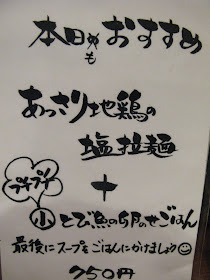 本日も おすすめ
あっさり地鶏の
塩拉麺
+
プチプチ
小 とび魚の卵のせごはん
最後にスープをごはんにかけましょう
250円